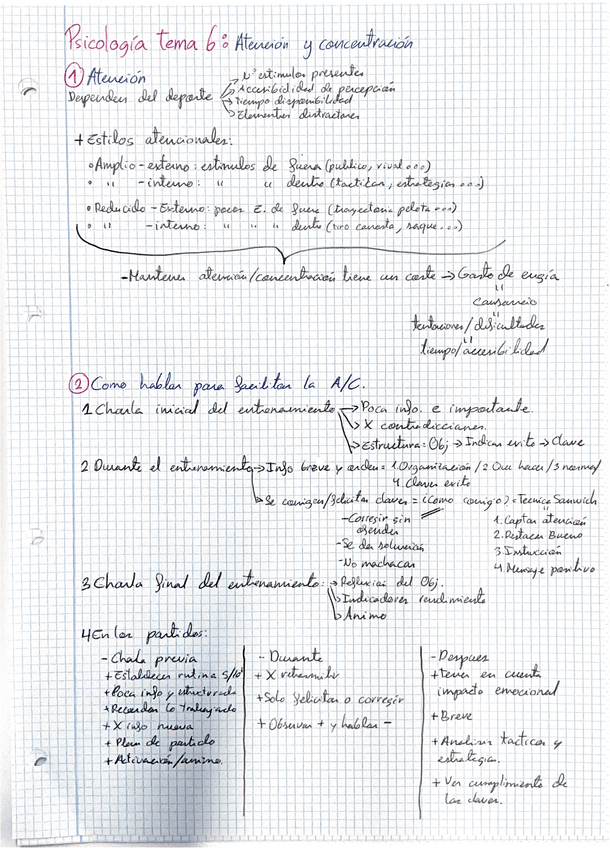 Psicología tema 6: Atención y concentración
① Atención
Dependen del deporte
Nº estimulos presentes
Accesibilidad de percepción
tiempo disponibilidad
Elementos distractores
+ Estilos atencionales:
• Amplio - externo: estimulos de fuera (publico, rival...)
• " - interno: " " dentro (tacticas, estrategias...)
• Reducido - Externo: pocos E. de fuera (trayectoria pelota...)
• " - interno: " " " dentro (tiro canasta, saque...)
- Mantener atención/concentración tiene un coste → Gasto de
"
cansancio
"
tentaciones/dificultades
"
tiempo/accesibilidad
② Como hablar para facilitar la A/C.
1 Charla inicial del entrenamiento → Poca info. e importante.
→ X contradicciones.
→ Estructura: Obj → Indicar exito → Clave
2 Durante el entrenamiento → Info breve y orden = 1. Organización / 2 Que hacer / 3 normas/
4. Claves exito
→ Se corrigen/felicitar claves = ¿Como corrigo? = Tecnica Sanwich
- Corregir sin
ofender
- Se da solución
- No machacar
1. Captar atención
2. Destacar Bueno
3 Instrucción
4 Mensaje positivo
3 Charla final del entrenamiento: → Reflexion del Obj.
→ Indicadores rendimiento
→ Animo
4 En los partidos:
- Charla previa
+ Establecer rutina 5/10'
+ Poca info y estructurada
+ Recordar lo trabajado
+ X info nueva
+ Plan de partido
+ Activación/animo.
- Durante
+ X retransmitir
+ Solo felicitar o corregir
+ Observar + y hablar -
- Despues
+ tener en cuenta
impacto emocional
+ Breve
+ Analizar tacticas y
estrategias.
+ Ver cumplimiento de
las claves.